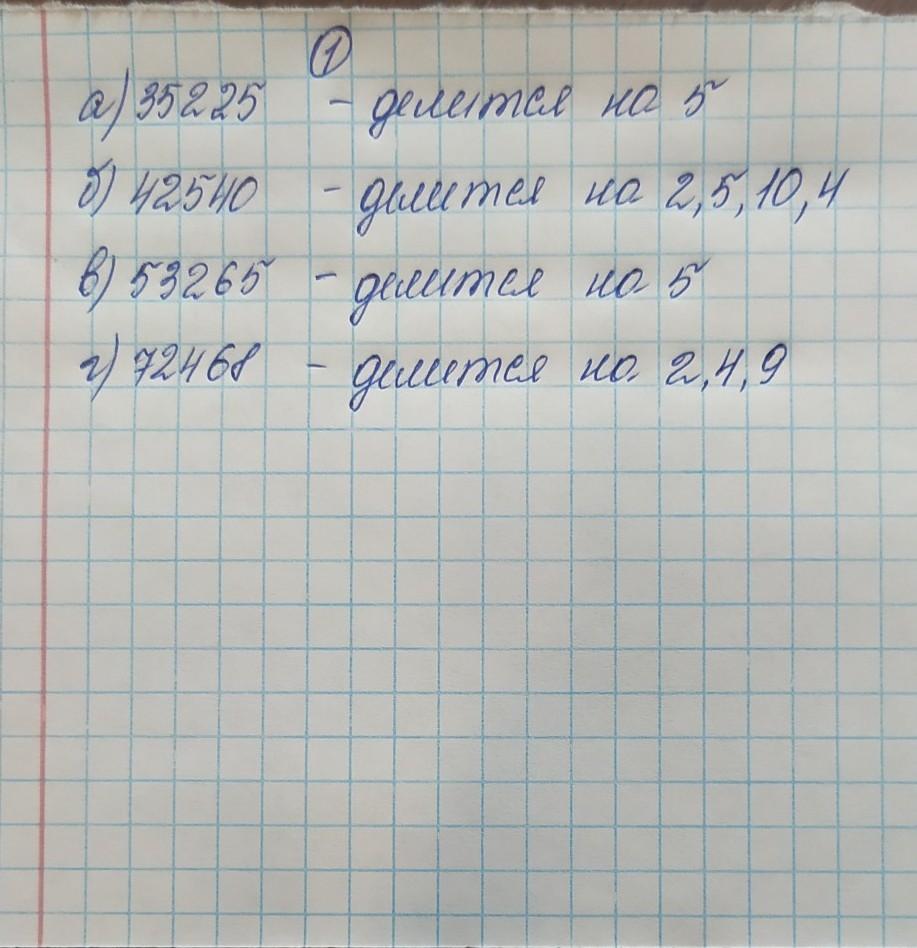 1
а) 35225 - делится на 5
б) 42540 - делится на 2,5,10,4
в) 53265 - делится на 5
г) 72468 - делится на 2,4,9